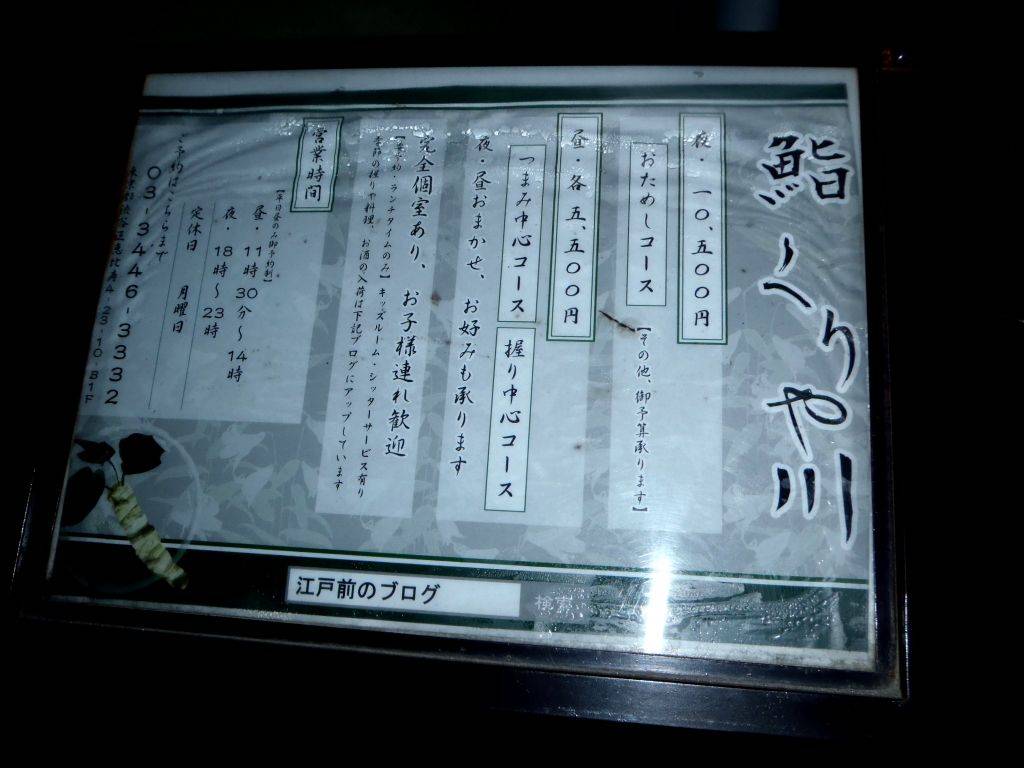 鮨 くりや川
夜・一〇、五〇〇円
おためしコース
【その他、御予算承ります】
昼・各 五、五〇〇円
つまみ中心コース
握り中心コース
夜・昼おまかせ、お好みも承ります
完全個室あり、お子様連れ歓迎
【要予約・ランチタイムのみ】キッズルーム・シッターサービス有り
季節の握りや料理、お酒の入荷は下記ブログにアップしています
営業時間
【平日昼のみ御予約制】
昼・11時30分～14時
夜・18時～23時
定休日 月曜日
ご予約はこちらまで
03-3446-3332
東京都渋谷区恵比寿4-23-10 B1F
江戸前のブログ
検索